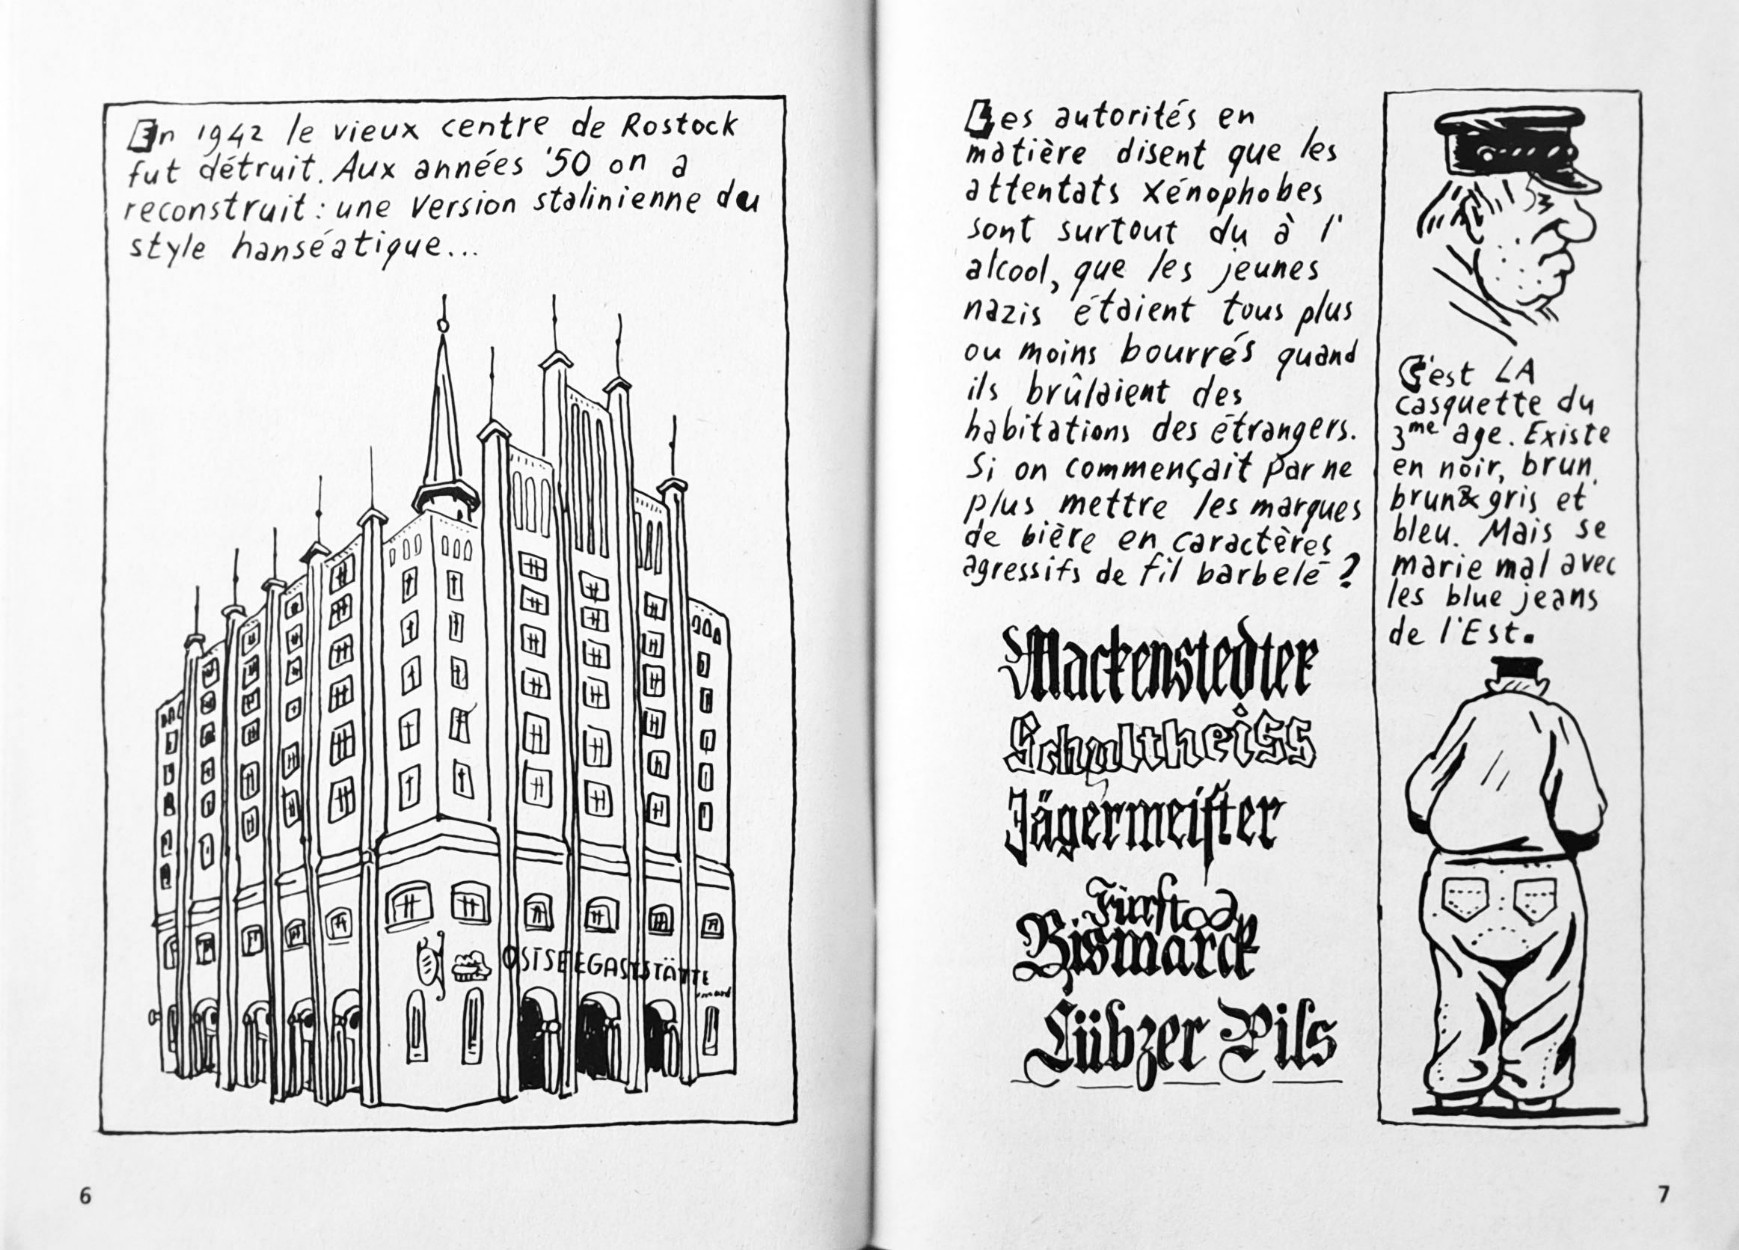 En 1942 le vieux centre de Rostock
fut détruit. Aux années '50 on a
reconstruit : une version stalinienne du
style hanséatique...
OSTSEEGASTSTÄTTE
6
Les autorités en
matière disent que les
attentats xénophobes
sont surtout du à l'
alcool, que les jeunes
nazis étaient tous plus
ou moins bourrés quand
ils brûlaient des
habitations des étrangers.
Si on commençait par ne
plus mettre les marques
de bière en caractères
agressifs de fil barbelé ?
Mackenstedter
Schultheiss
Jägermeifter
Fürst
Bismarck
Lübzer Pils
C'est LA
casquette du
3me age. Existe
en noir, brun,
brun & gris et
bleu. Mais se
marie mal avec
les blue jeans
de l'Est.
7